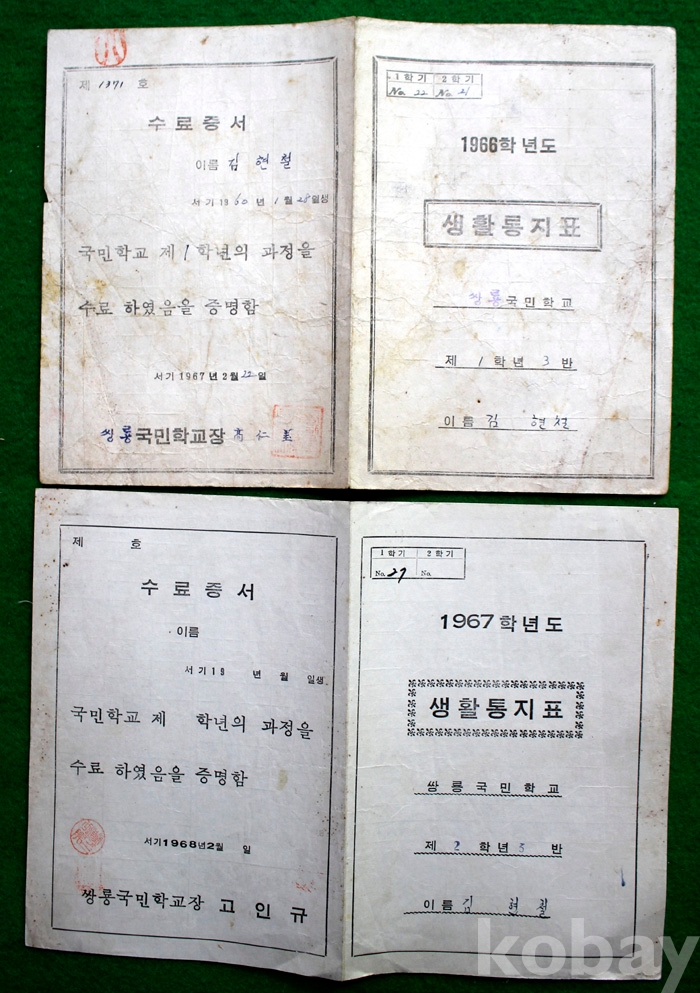 제 1371 호
수료증서
이름 김현철
서기 1960년 1월 28일생
국민학교 제 1 학년의 과정을
수료 하였음을 증명함
서기 1967년 2월 22일
쌍룡국민학교장 高仁
1학기 2학기
No. 22 No. 21
1966학년도
생활통지표
쌍룡국민학교
제 1 학년 3 반
이름 김현철
제 호
수료증서
이름
서기 19 년 월 일생
국민학교 제 학년의 과정을
수료 하였음을 증명함
서기 1968년 2월 일
쌍룡국민학교장 고인규
1학기 2학기
No. 27 No.
1967학년도
생활통지표
쌍룡국민학교
제 2 학년 3 반
이름 김현철
kobay